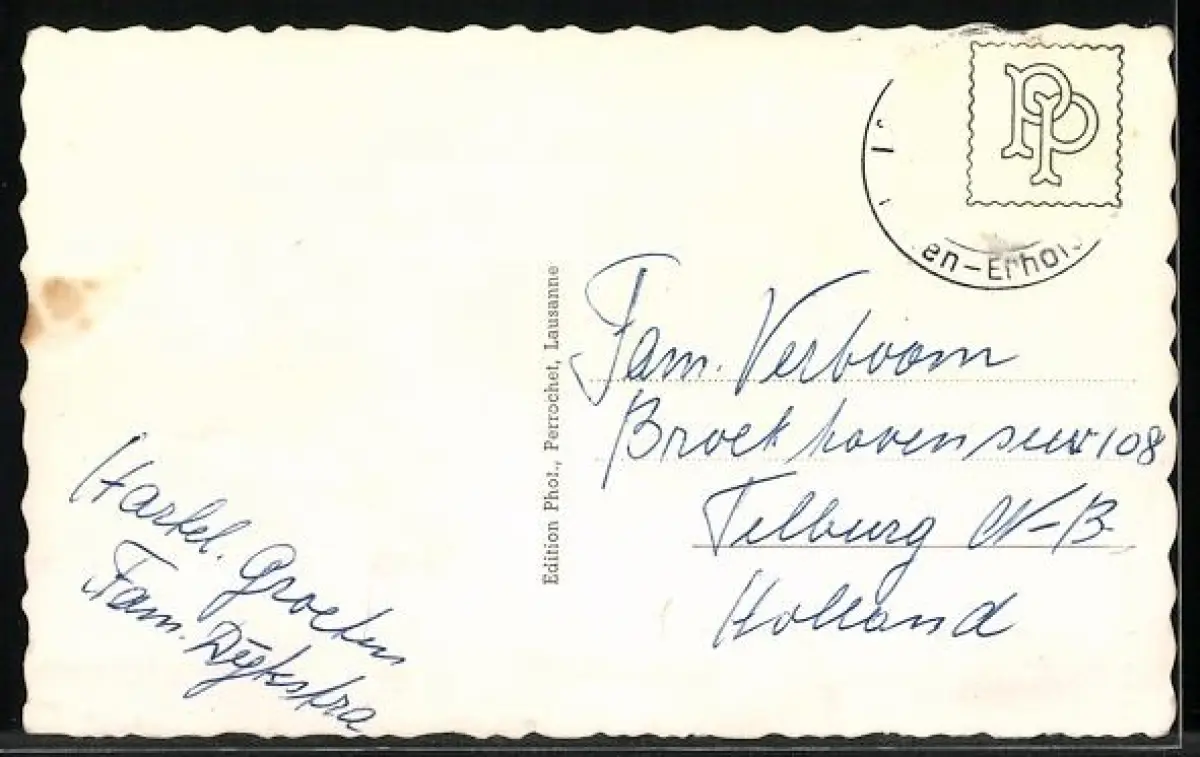 PP
en-Erho
Edition Phot., Perrochet, Lausanne
Fam. Verboom
108
Tilburg N-B
Holland
Hartel. Groeten
Fam. Dijkstra